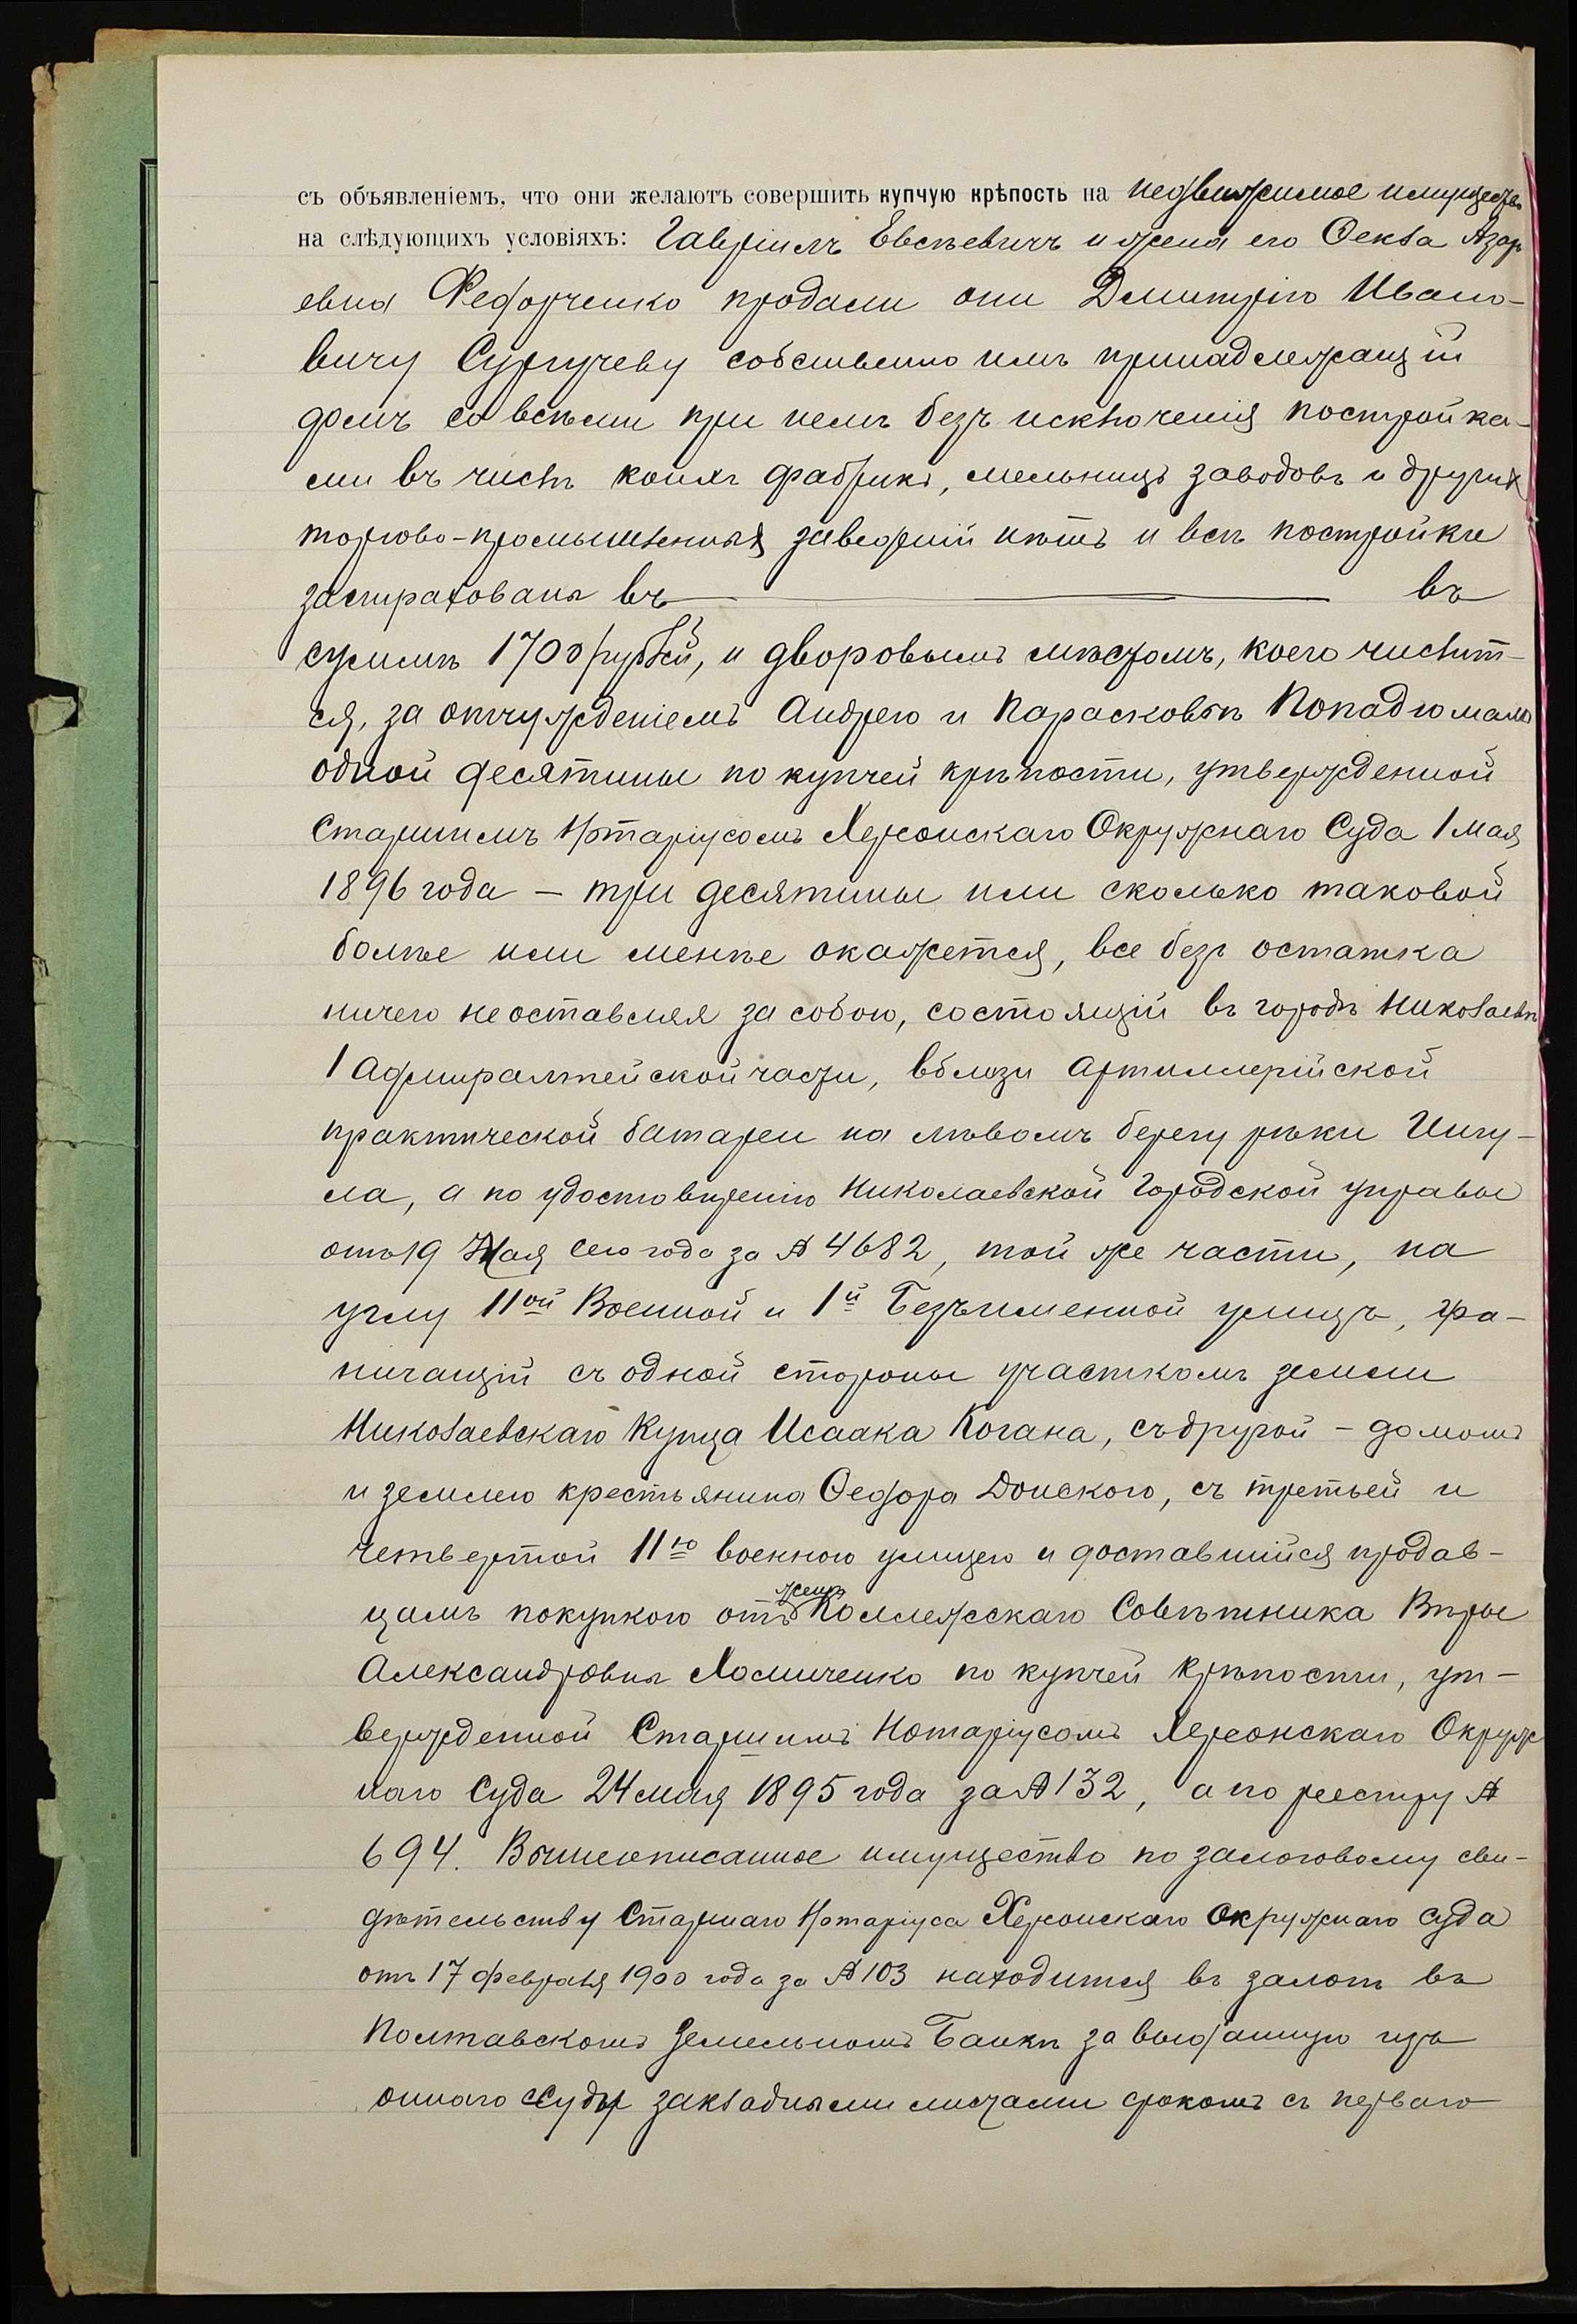 съ объявленіемъ, что они желаютъ совершить купчую крѣпость на недвижимое имущество
на слѣдующихъ условіяхъ: Гавріилъ Евсѣевичъ и жена его Ѳекла Азарь
евна Федорченко продали они Дмитрію Ивано-
вичу Сургучеву собственно имъ принадлежащій
домъ со всѣми при немъ безъ исключенія постройка-
ми въ числѣ коихъ фабрикъ, мельницъ заводовъ и другихъ
торгово-промышленныхъ заведеній нѣтъ и всѣ постройки
застрахованы въ —— въ
суммѣ 1700 рублей, и дворовымъ мѣстомъ, коего числит-
ся, за отчужденіемъ Андрею и Парасковѣѣ Попадюмалъ
одной десятины по купчей крѣпости, утвержденной
Старшимъ Нотаріусомъ Херсонскаго Окружнаго Суда 1 мая
1896 года — три десятины или сколько таковой
болѣе или менѣе окажется, все безъ остатка
ничего не оставляя за собою, состоящій въ городѣ Николаевѣ
1 Адмиралтейской части, вблизи Артиллерійской
практической батареи на лѣвомъ берегу рѣки Ингу-
ла, а по удостовѣренію Николаевской Городской управы
отъ 19 Мая сего года за № 4682, той же части, на
углу 11ой Военной и 1й Безъименной улицъ, гра-
ничащій съ одной стороны участкомъ земли
Николаевскаго Купца Исаака Когана, съ другой - домомъ
и землею крестьянина Ѳедора Донского, съ третьей и
четвертой 11ю военною улицею и доставшійся продав-
цамъ покупкою отъ жены Коллежскаго Совѣтника Вѣры
Александровны Хомиченко по купчей крѣпости, ут-
вержденной Старшимъ Нотаріусомъ Херсонскаго Окруж
наго Суда 24 мая 1895 года за № 132, а по реестру №
694. Вышеописанное имущество по залоговому сви-
дѣтельству Старшаго Нотаріуса Херсонскаго Окружнаго Суда
отъ 17 февраля 1900 года за № 103 находится въ залогѣ въ
Полтавскомъ Земельномъ Банкѣ за выданную изъ
оннаго ссуду закладными листами срокомъ съ перваго